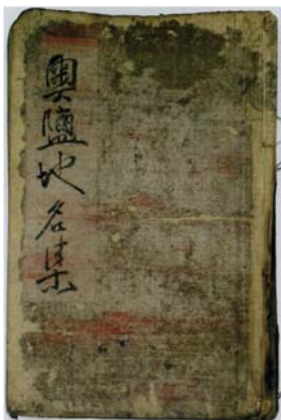 奧鹽地名集